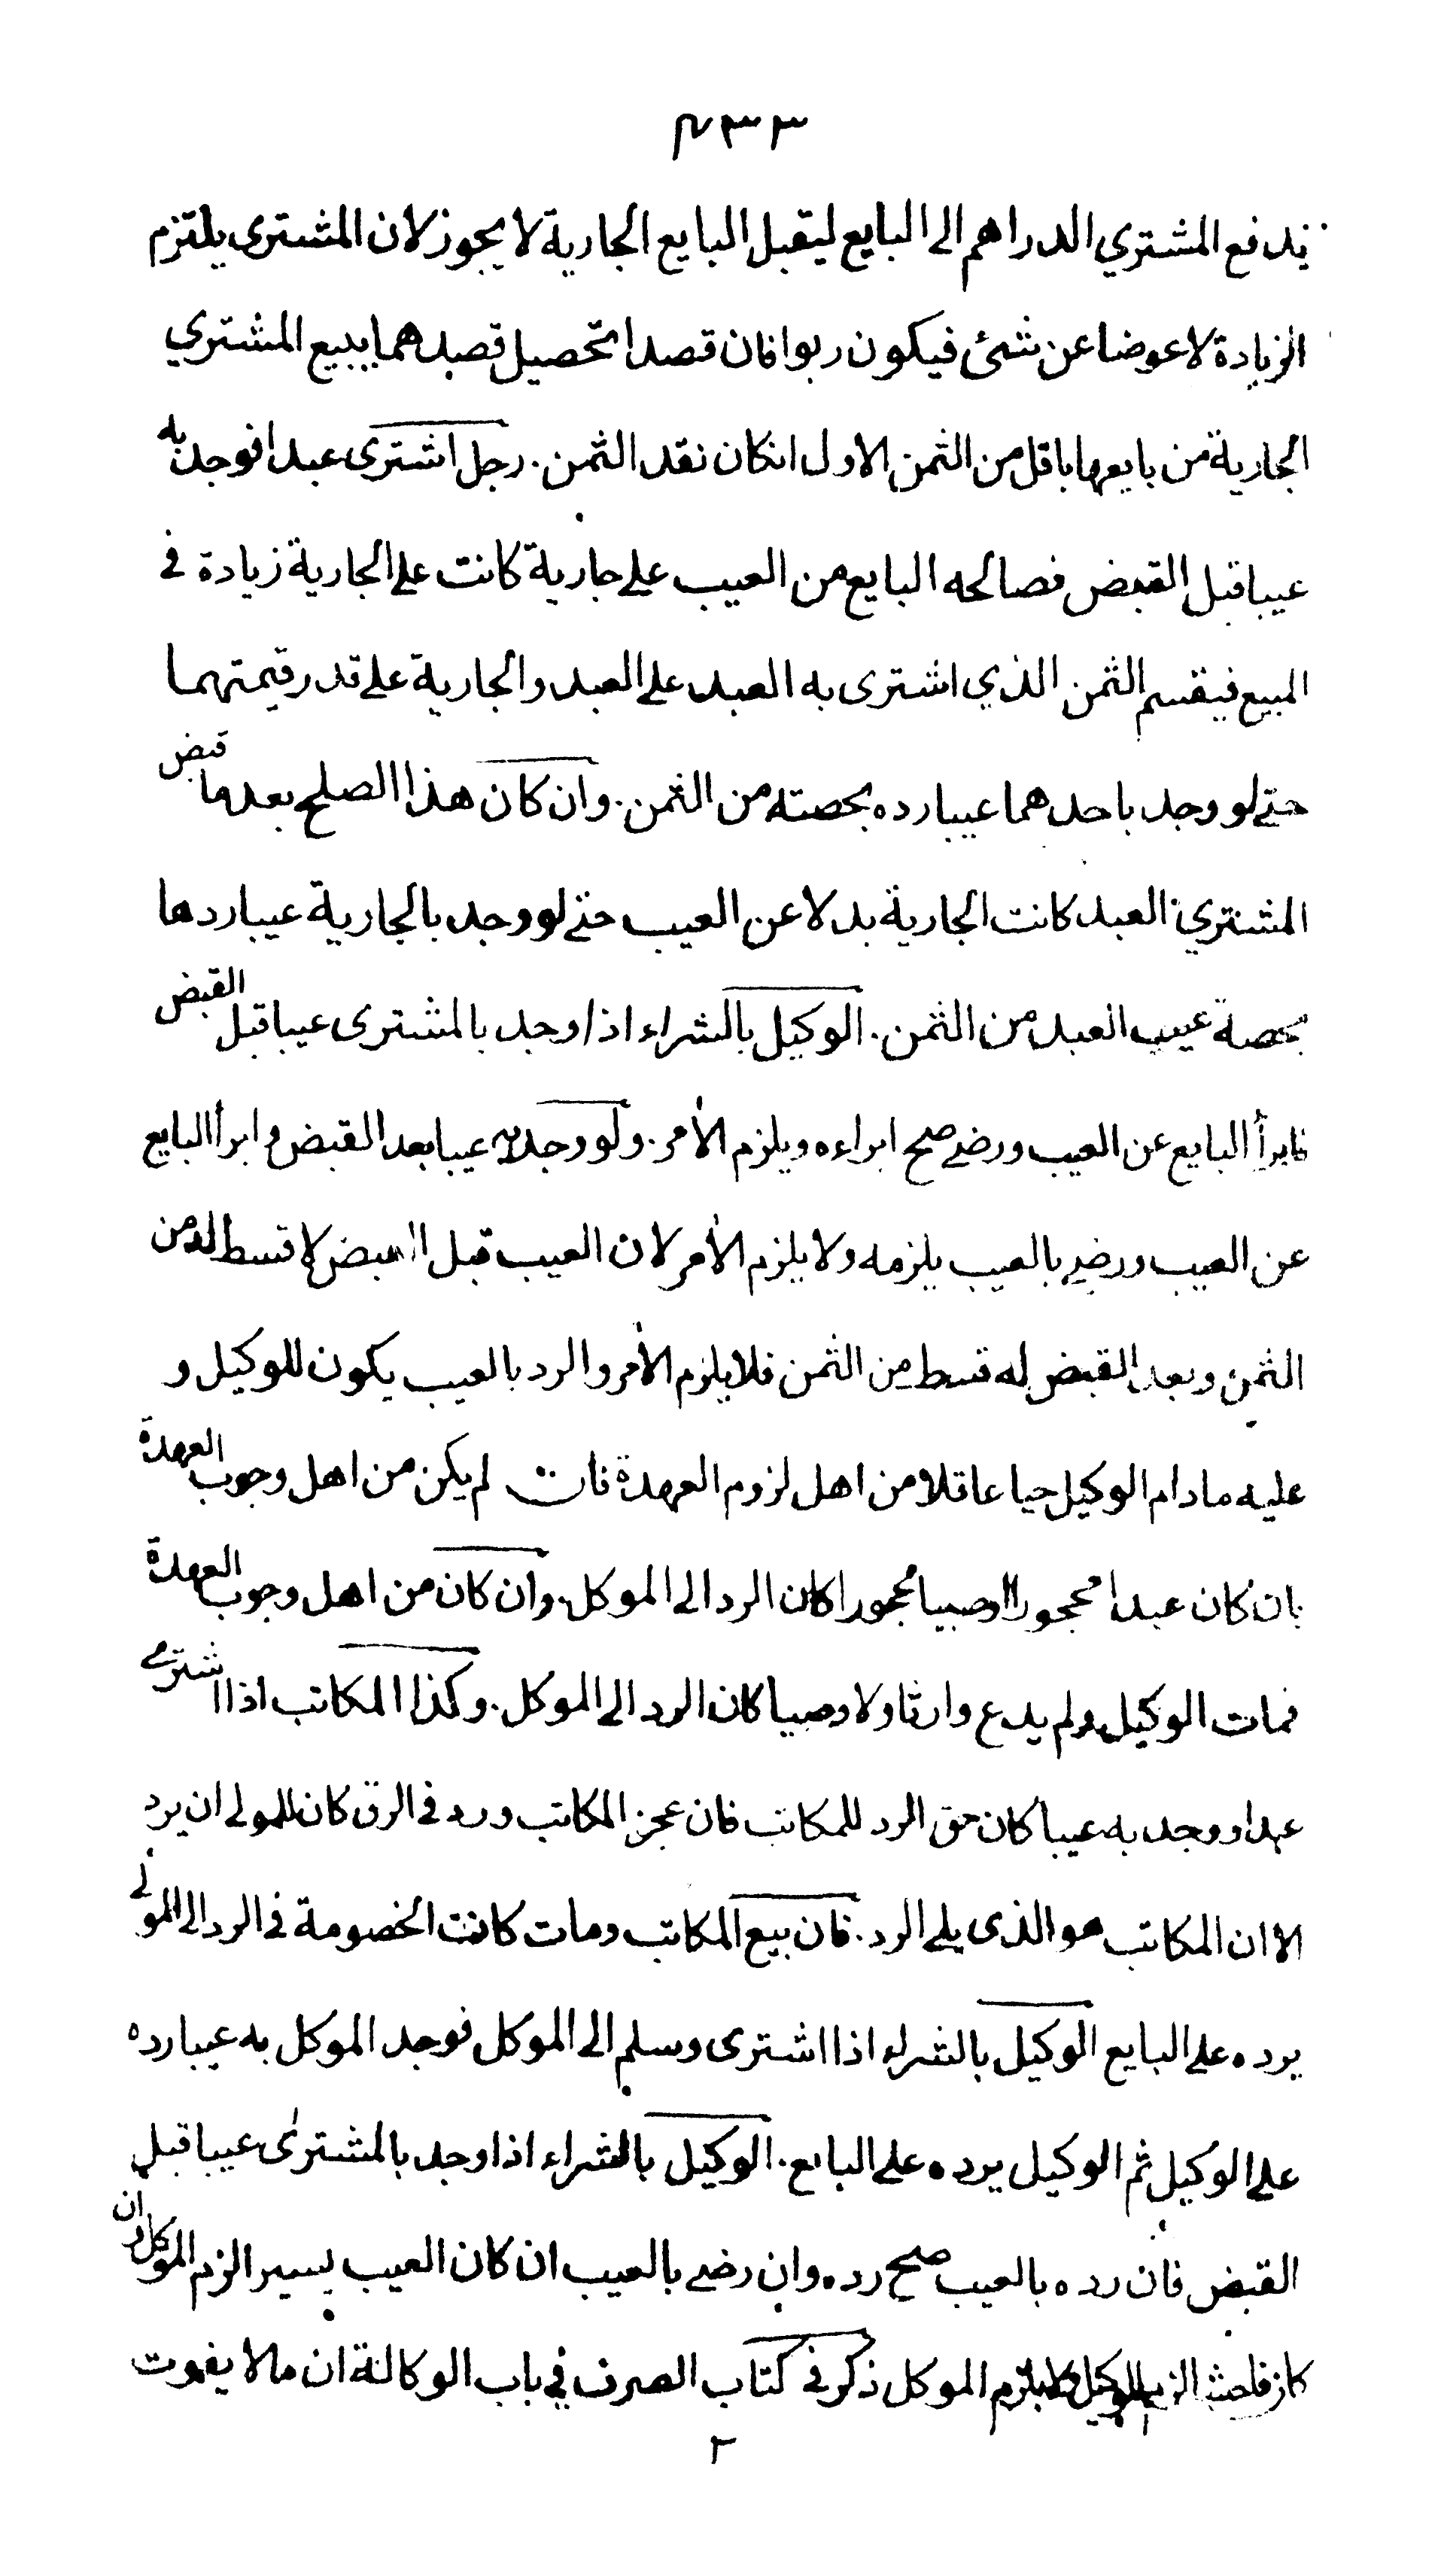 ٤٣٣
يدفع المشتري الدراهم الى البايع ليقبل البايع الجارية لا يجوز لان المشترى يلتزم
الزيادة لا عوضا عن شئ فيكون ربوا فان قصدا تحصيل قصدهما يبيع المشتري
الجارية من بايعها باقل من الثمن الاول انكان نقد الثمن . رجل اشترى عبدا فوجد به
عيبا قبل القبض فصالحه البايع من العيب على جارية كانت على الجارية زيادة في
المبيع فيقسم الثمن الذي اشترى به العبد على العبد والجارية على قدر قيمتهما
حتى لو وجد باحدهما عيبا رده بحصته من الثمن . وان كان هذا الصلح بعد ما قبض
المشتري العبد كانت الجارية بدلا عن العيب حتى لو وجد بالجارية عيبا ردها
بحصة عيب العبد من الثمن . الوكيل بالشراء اذا وجد بالمشترى عيبا قبل القبض
فابرأ البايع عن العيب ورضى صح ابراءه ويلزم الأمر . ولو وجد به عيبا بعد القبض وابرأ البايع
عن العيب ورضى بالعيب يلزمه ولا يلزم الأمر لان العيب قبل القبض لا قسط له من
الثمن وبعد القبض له قسط من الثمن فلا يلزم الأمر والرد بالعيب يكون للوكيل و
عليه ما دام الوكيل حيا عاقلا من اهل لزوم العهدة فان لم يكن من اهل وجوب العهدة
بان كان عبدا محجورا او صبيا محجورا كان الرد الى الموكل . وان كان من اهل وجوب العهدة
فمات الوكيل ولم يدع وارثا ولا وصيا كان الرد الى الموكل . وكذا المكاتب اذا اشترى
عبدا ووجد به عيبا كان حق الرد للمكاتب فان عجز المكاتب ورد في الرق كان للمولى ان يرد
الا ان المكاتب هو الذى يلي الرد . فان بيع المكاتب ومات كانت الخصومة في الرد الى المولى
يرده على البايع الوكيل بالشراء اذا اشترى وسلم الى الموكل فوجد الموكل به عيبا رده
على الوكيل ثم الوكيل يرده على البايع . الوكيل بالشراء اذا وجد بالمشترى عيبا قبل
القبض فان رده بالعيب صح رده وان رضى بالعيب ان كان العيب يسيرا لزم الموكل وان
كان فاحشا لزم الوكيل ولا يلزم الموكل ذكر في كتاب الصرف في باب الوكالة ان ما لا يفوت
٢